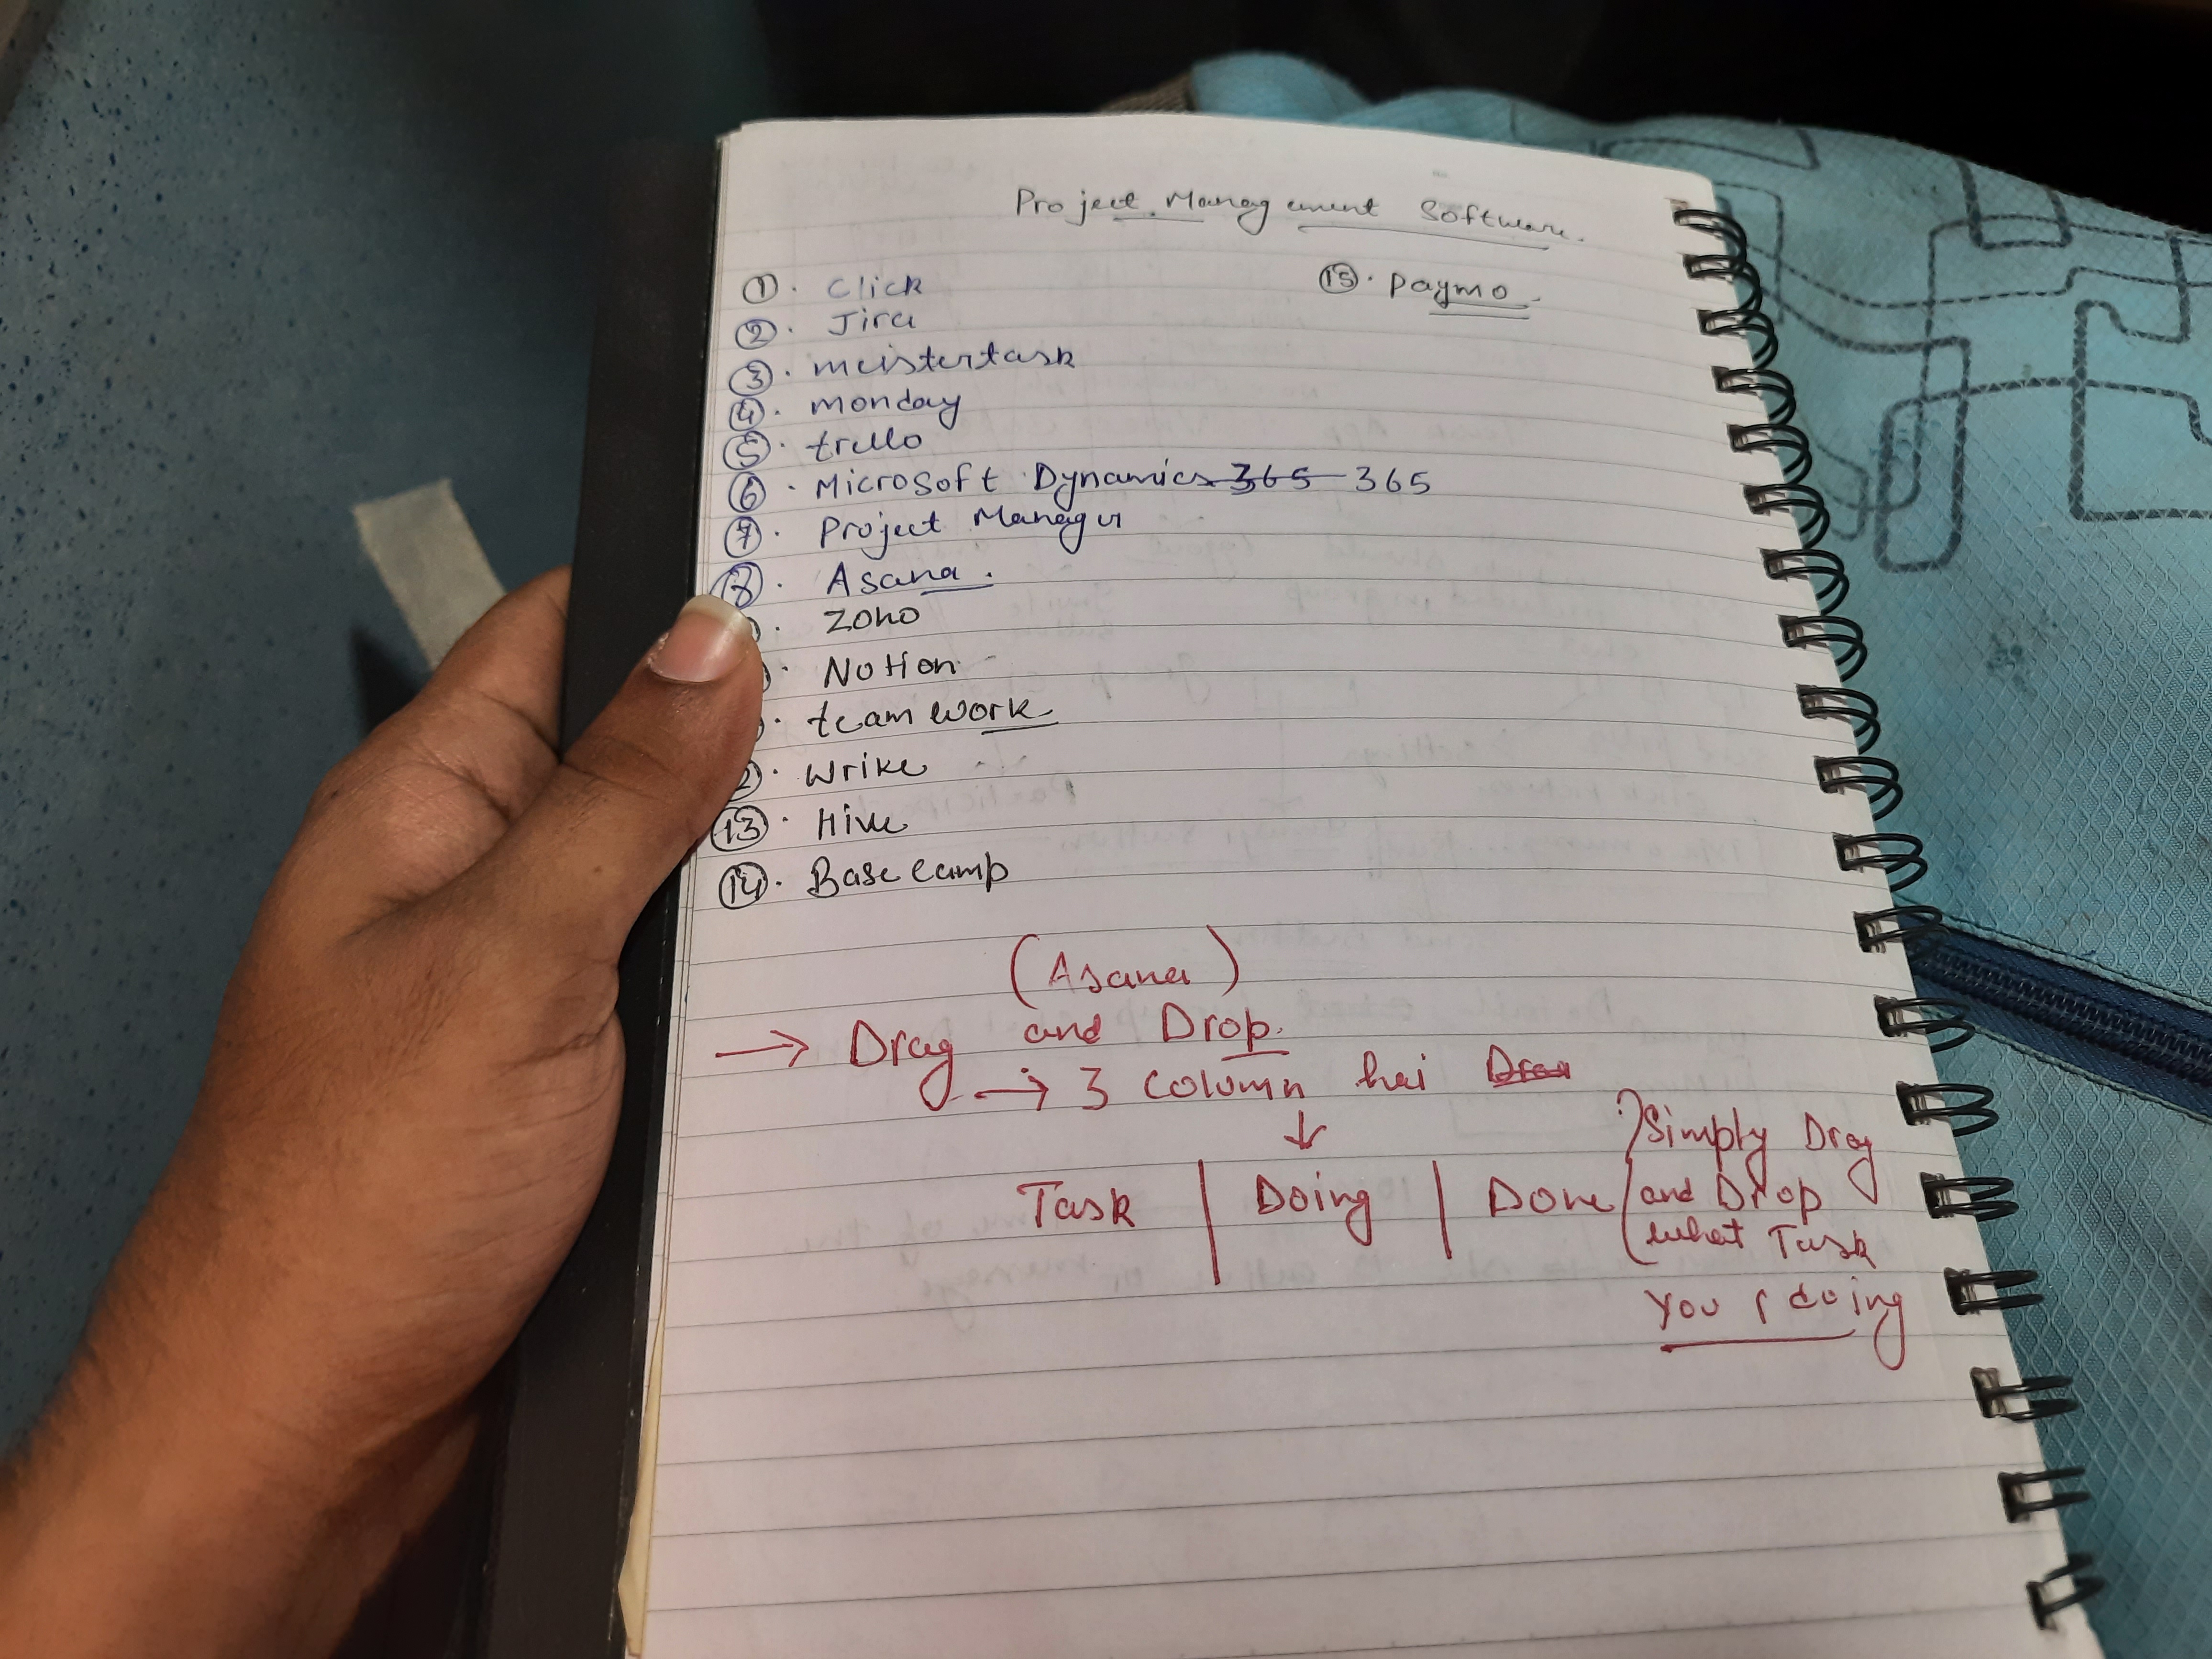 Project Management Software.
① . Click
⑮ . Paymo .
② . Jira
③ . meistertask
④ . monday
⑤ . trello
⑥ . Microsoft Dynamics 365 365
⑦ . Project Manager
. Asana .
. ZOHO
. Notion
. team work .
. Wrike
⑬ . Hive
⑭ . Base camp
(Asana)
→ Drag and Drop.
→ 3 column hai
↓
Task | Doing | Done
Simply Drag
and Drop
what Task
you r doing